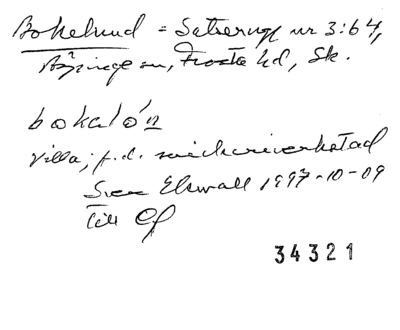 Bokelund = Sätserup nr 3:64,
Äspinge sn, Frosta hd, Sk.
bokaló'n
villa, f.d. snickeriverkstad
Sven Ekwall 1997-10-09
till Of
34321